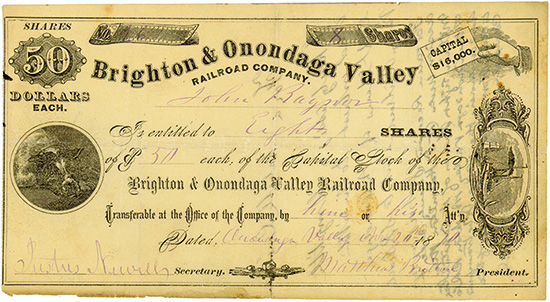 SHARES
50
DOLLARS
EACH.
No. 8 Shares
CAPITAL
$16,000.
Brighton & Onondaga Valley
RAILROAD COMPANY.
John
Is entitled to Eight SHARES
of $ 50 each, of the Capital Stock of the
Brighton & Onondaga Valley Railroad Company,
Transferable at the Office of the Company, by him or his Att'y.
Dated, Onondaga Valley 18
Secretary. Matthias President.